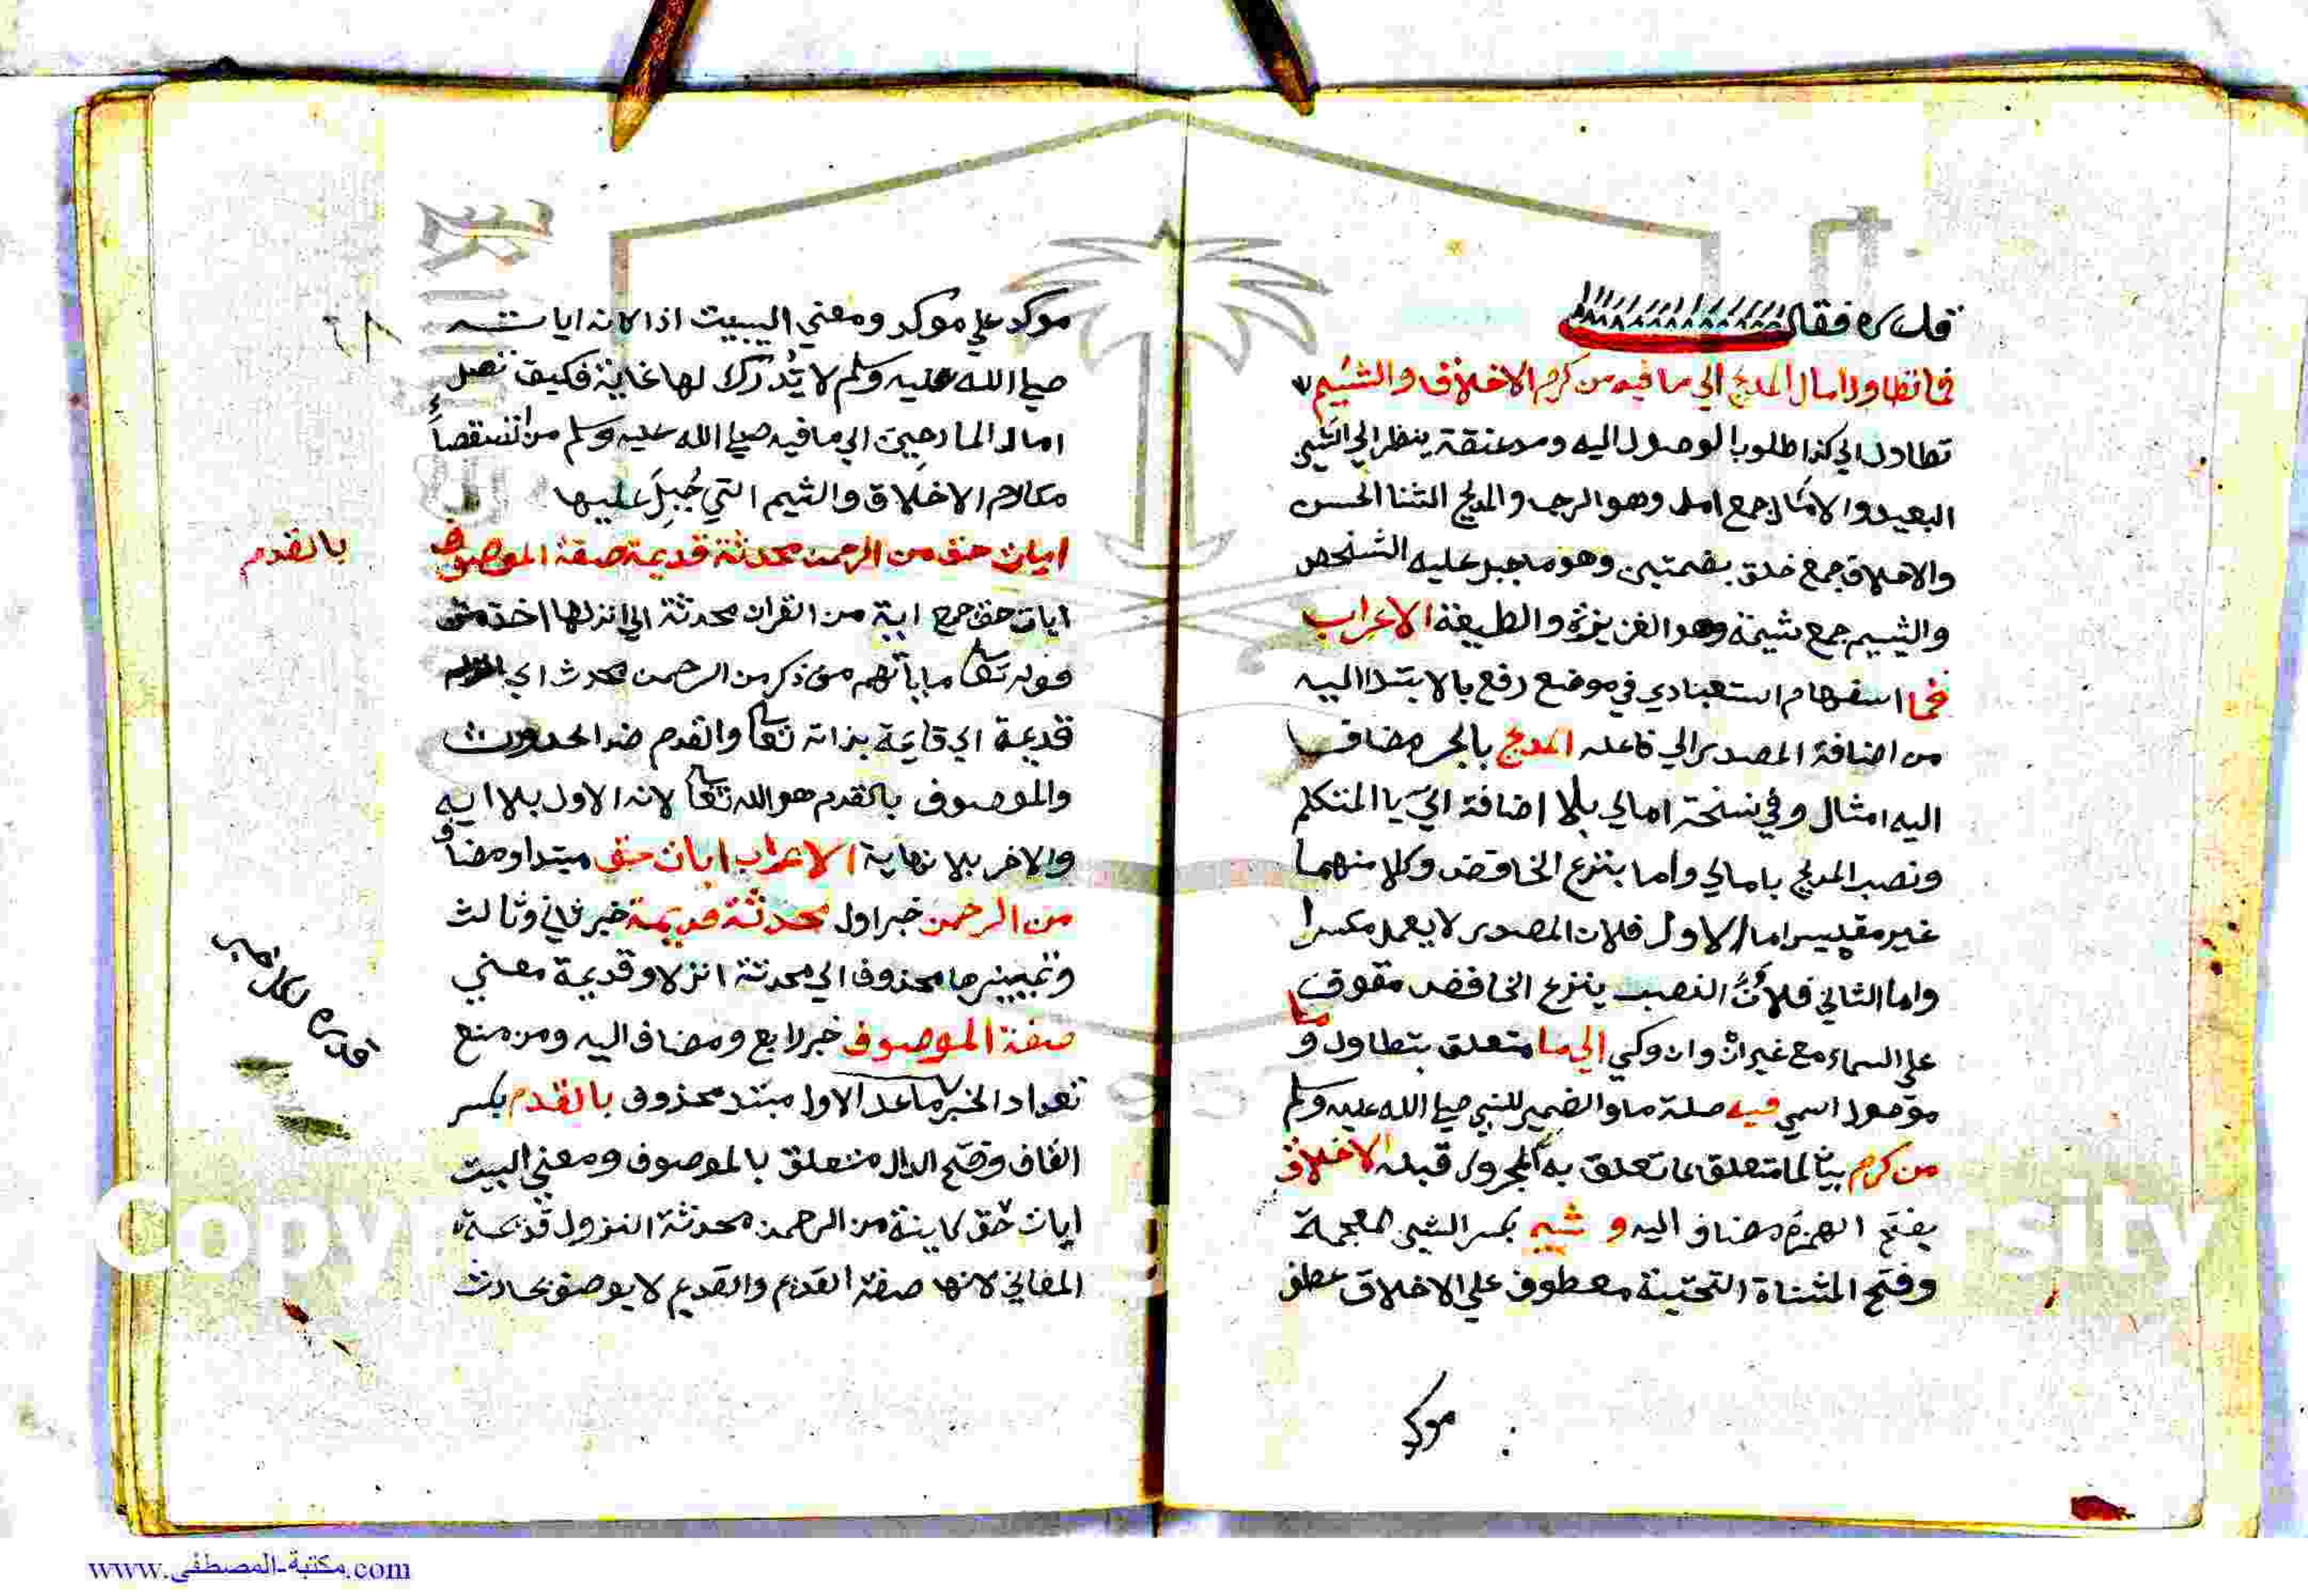 قدره فقال
فما تطاول امال المديح الي ما فيه من كرم الاخلاق والشيم
تطاول الي كذا طلوبا لوصول اليه ومد عنقه ينظر الي الشي
البعيد والامال جمع امل وهو الرجا والمديح الثنا الحسن
والاخلاق جمع خلق بضمتين وهو ما جبل عليه الشخص
والشيم جمع شيمة وهو الغريزة والطبيعة الاعراب
فما استفهام استبعادي في موضع رفع بالابتدا اليه
من اضافة المصدر الي فاعله المديح بالجر مضاف
اليه امثال وفي نسخة امالي بلا اضافة الي يا المتكلم
ونصب المديح بامالي واما بنزع الخافض وكلا منهما
غير مقيس اما الاول فلان المصدر لا يعمل مكسرا
واما الثاني فلان النصب بنزع الخافض مقوف
علي السماع مع غير ان وان وكي الي ما متعلق بتطاول وما
موصول اسمي فيه صلة ما والضمير للنبي صلي الله عليه وسلم
من كرم بيان لما متعلق بما تعلق به المجرور قبله الاخلاق
بفتح الهمزة مضاف اليه و شيم بكسر الشين المعجمة
وفتح المثناة التحتية معطوف علي الاخلاق عطف
موكد
موكد علي موكد ومعني البيت اذا كانه ايات
صلي الله عليه وسلم لا يُدرك لها غاية فكيف تصل
امال المادحين الي ما فيه صلي الله عليه وسلم من
مكارم الاخلاق والشيم التي جُبِلَ عليها
ايات حق من الرحمن محدثة قديمة صفة الموصوف
بالقدم
ايات حق جمع اية من القران محدثة اي انزلها اخذ من
قوله تعالى ما ياتيهم من ذكر من الرحمن محدث اي
قديمة اي قايمة بذاته تعالى والقدم ضد الحدوث
والموصوف بالقدم هو الله تعالى لانه الاول بلا
والاخر بلا نهاية الاعراب ايات حق مبتدا ومضاف
من الرحمن خبر اول محدثة قديمة خبر ثاني وثالث
وتمييزها محذوف اي محدثة انزلا وقديمة معني
صفة الموصوف خبر رابع ومضاف اليه ومن منع
تعداد الخبر ما عدا الاول مبتد محذوف بالقدم بكسر
القاف وفتح الدال متعلق بالموصوف ومعني البيت
ايات حق كاينة من الرحمن محدثة النزول قديمة
المعاني لانها صفة القديم والقديم لا يوصف بحادث
www.مكتبة-المصطفى.com